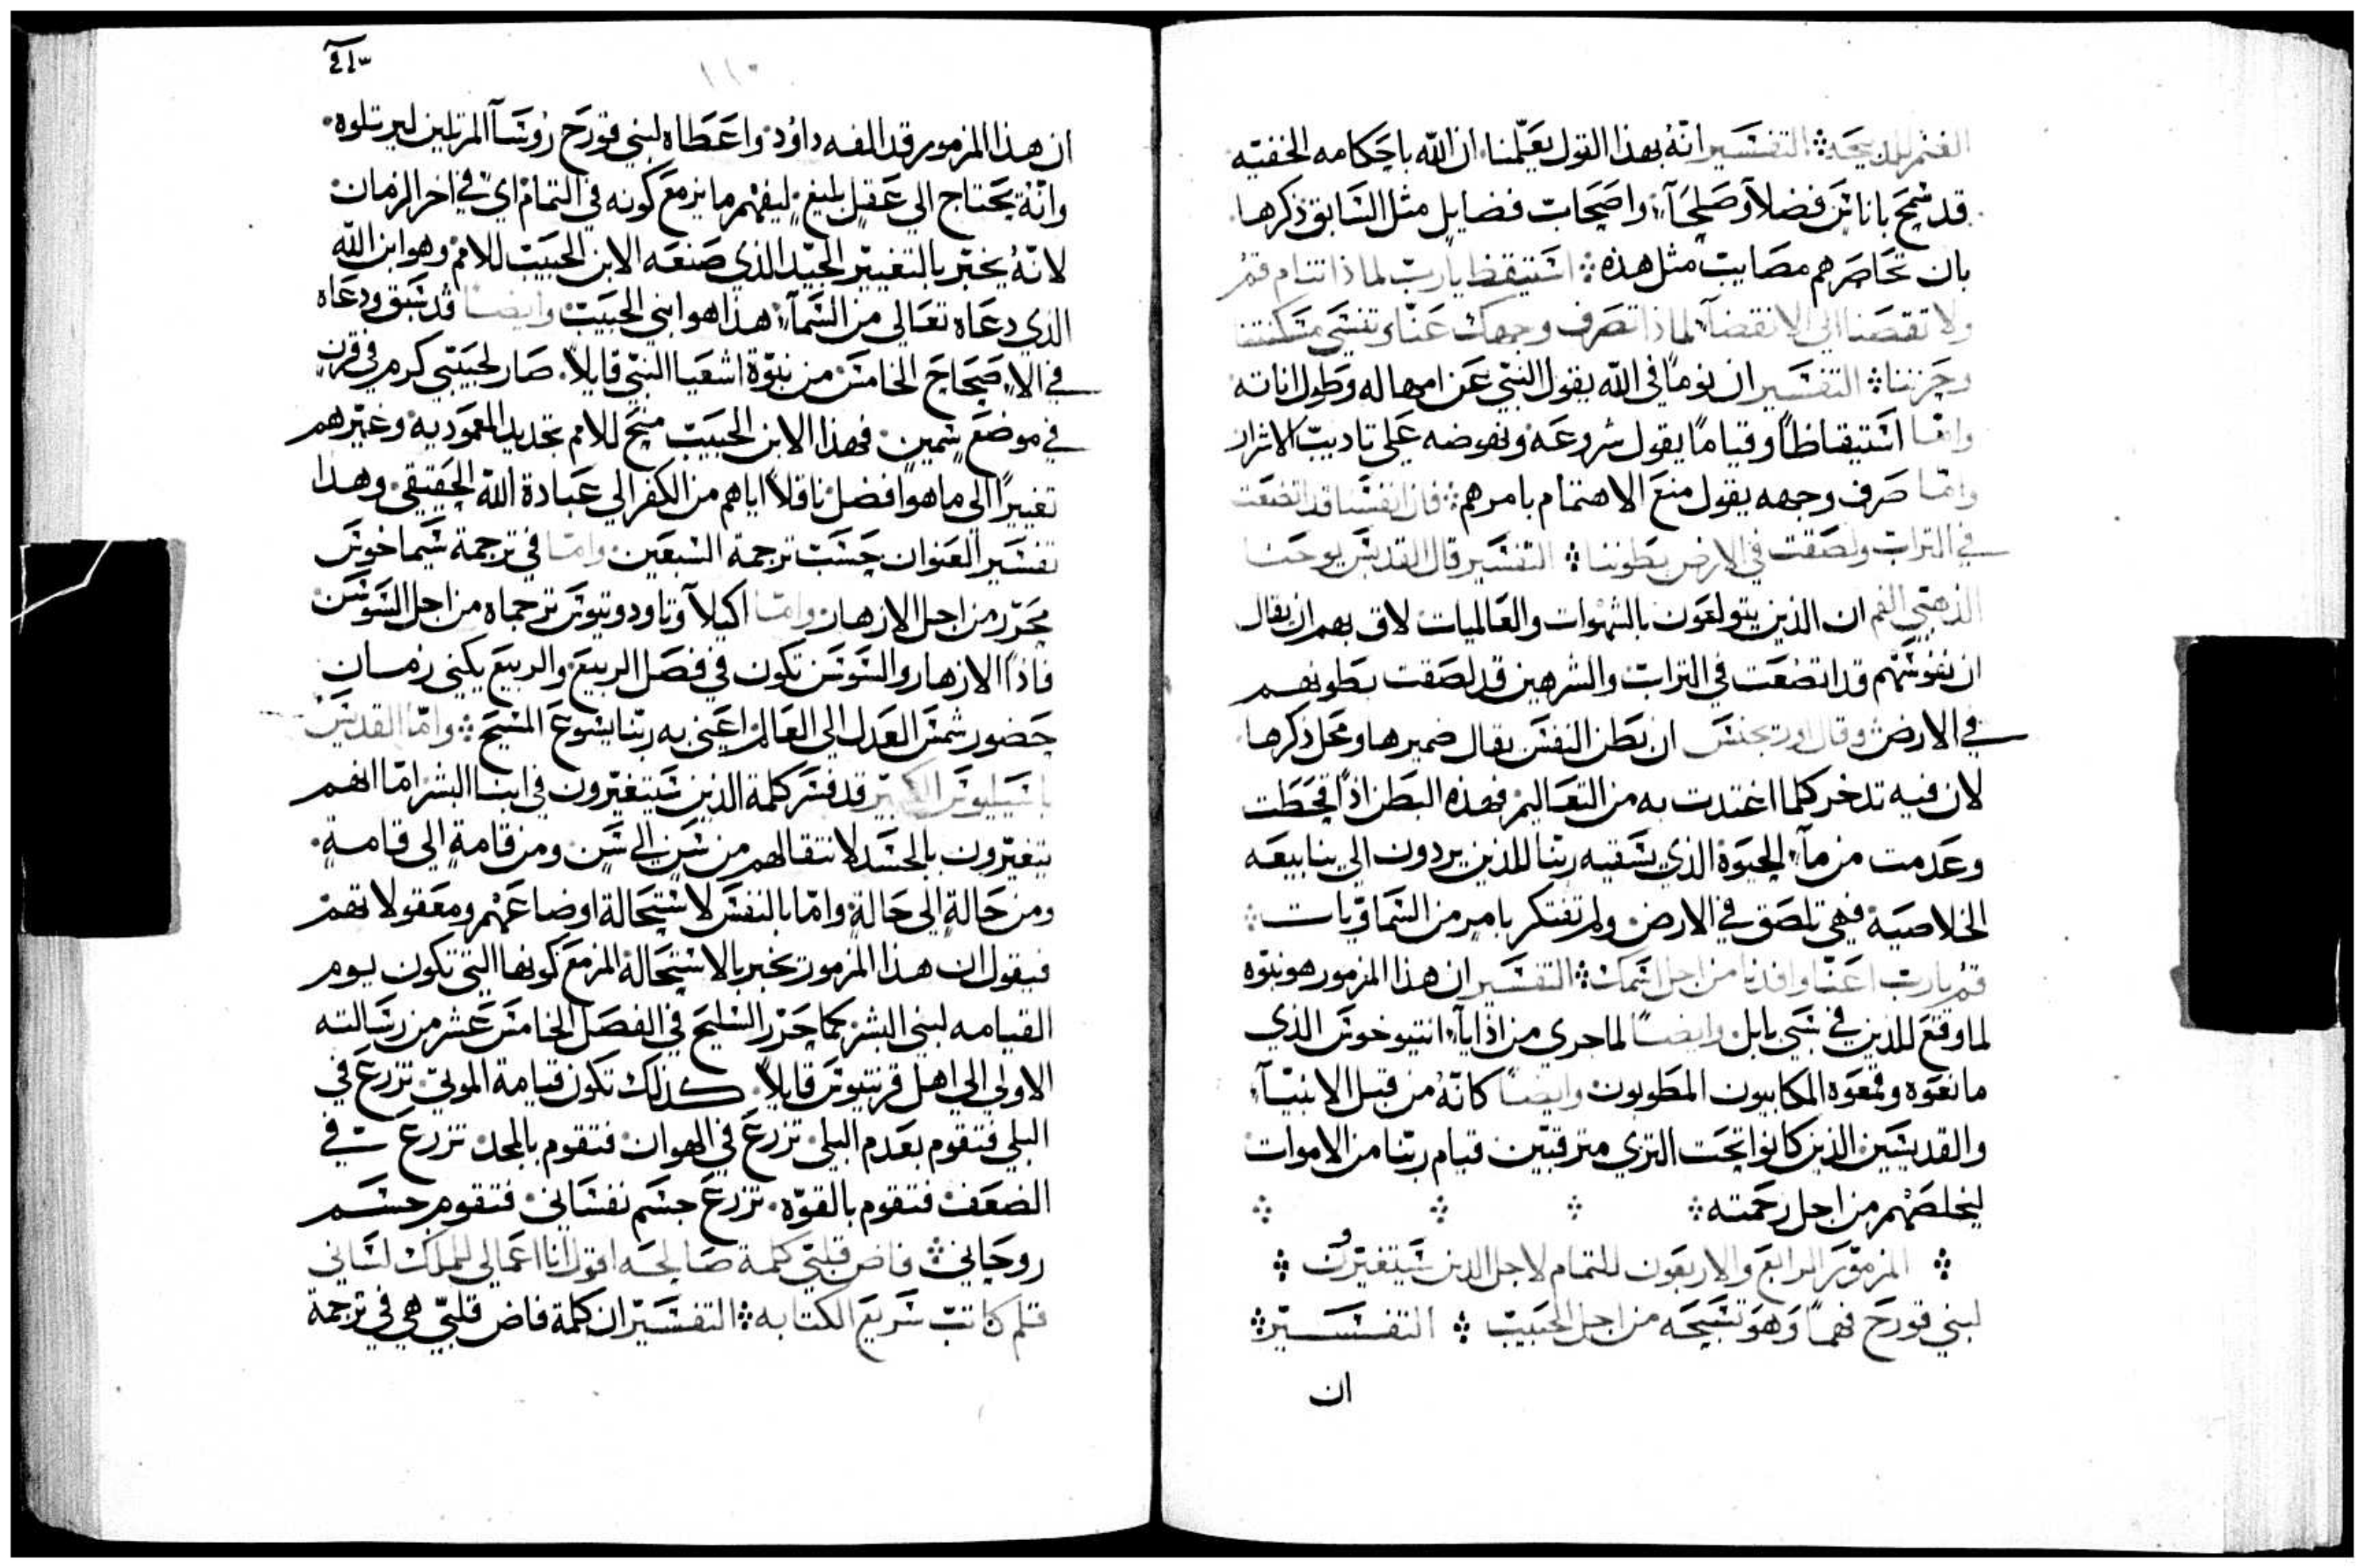 الغنم للذبيحة ܀ التفسير انّهُ بهذا القول يعلّمنا، ان الله باحكامه الخفيّه
قد سمح باناسٍ فضلآ وصلحآ، واصحاب فضايل مثل السابق ذكرها.
بان تحاصرهم مصايب مثل هذه ܀ استيقظ يارب لماذا تنام قمُ
ولا تقصنا الى الانقضآ، لماذا تصرف وجهك عنّا وتنسى مسكنتنا
وحزننا ܀ التفسير ان نومًا في الله يقول النبي عن امهاله وطول اناته
وامّا استيقاظًا وقيامًا يقول شروعه ونهوضه على تاديب الاشرار
وامّا صرف وجهه يقول منع الاهتمام بامرهم ܀ فان انفسنا قد اتضعت
في التراب ولصقت في الارض بطوننا ܀ التفسير قال القديس يوحنا
الذهبي الفم ان الذين يتولعون بالشهوات والعالميات لاق بهم ان يقال
ان نفوسهم قد اتضعت في التراب والشرهين قد لصقت بطونهم
في الارض وقال اوريجنس ان بطن النفس يقال ضميرها ومحل ذكرها
لان فيه تدخر كلما اغتدت به من التعاليم فهذه البطن اذا قحطت
وعدمت من مآء الحيوة الذي يسقيه ربنا للذين يردون الى ينابيعه
الخلاصية فهي تلصق في الارض ولم تفتكر بامرٍ من السماويات ܀
قمُ يارب اعنّا وافدنا من اجل اسمك ܀ التفسير ان هذا المزمور هو نبوّه
لما وقع للذين في سبي بابل وايضًا لما جرى من اذايآء انتيوخوس الذي
مانعوه وقمعوه المكابيون المطوبون وايضًا كانّهُ من قبل الانبيآء
والقديسين الذين كانوا تحت الثرى مترقبين قيام ربّنا من الاموات
ليخلصهم من اجل رحمته ܀
܀ المزمور الرابع والاربعون للتمام لاجل الذين سيتغيّرون ܀
لبني قورح فهمًا وهو تسبحه من اجل الحبيب ܀ التفسير ܀
ان
ان هذا المزمور قد الفه داوُد واعطاه لبني قورح روسآ المرتلين ليرتلوه.
وانّهُ يحتاج الى عقلٍ بليغٍ ليفهم ما يزمع كونه في التمام اي في اخر الزمان
لانّهُ يخبّر بالتغيير الجيّد الذي صنعه الابن الحبيب للامم وهو ابن الله
الذي دعاه تعالى من السمآء هذا هو ابني الحبيب وايضا قد سبق ودعاه
في الاصحاح الخامس من نبوّة اشعيا النبي قايلاً. صار لحبيبي كرم في قرن
في موضع سمين. فهذا الابن الحبيب منح للامم تجديد المعمودية وغيّرهم
تغييرًا الى ما هو افضل ناقلاً اياهم من الكفر الى عبادة الله الحقيقي وهذا
تفسير العنوان حسب ترجمة السبعين وامّا في ترجمة سيماخوس
محرّر من اجل الازهار وامّا اكيلآ وتاودوتيوس ترجماه من اجل السوسن
فاذًا الازهار والسوسن تكون في فصل الربيع والربيع يكنى زمان
حضور شمس العدل الى العالم اعني به ربّنا يسوع المسيح ܀ وامّا القديس
باسيليوس الكبير قد فسر كلمة الذين سيتغيّرون في ابنا البشر امّا انهم
يتغيّرون بالجسد لانتقالهم من سن الى سن ومن قامةٍ الى قامةٍ.
ومن حالةٍ الى حالةٍ وامّا بالنفس لاستحالة اوضاعهم ومعقولاتهم
فيقول ان هذا المزمور يخبر بالاستحالة المزمع كونها التي تكون يوم
القيامه لبني البشر كما حرّر السليح في الفصل الخامس عشر من رسالته
الاولى الى اهل قرنتيوس قايلاً. كذلك تكون قيامة الموتى تزرع في
البلى فتقوم بعدم البلى تزرع في الهوان فتقوم بالمجد تزرع في
الضعف فتقوم بالقوّه. تزرع جسم نفساني فتقوم جسم
روحاني ܀ فاض قلبي كلمة صالحه اقول انا اعمالي للملك لساني
قلم كاتب سريع الكتابه ܀ التفسير ان كلمة فاض قلبي هي في ترجمة